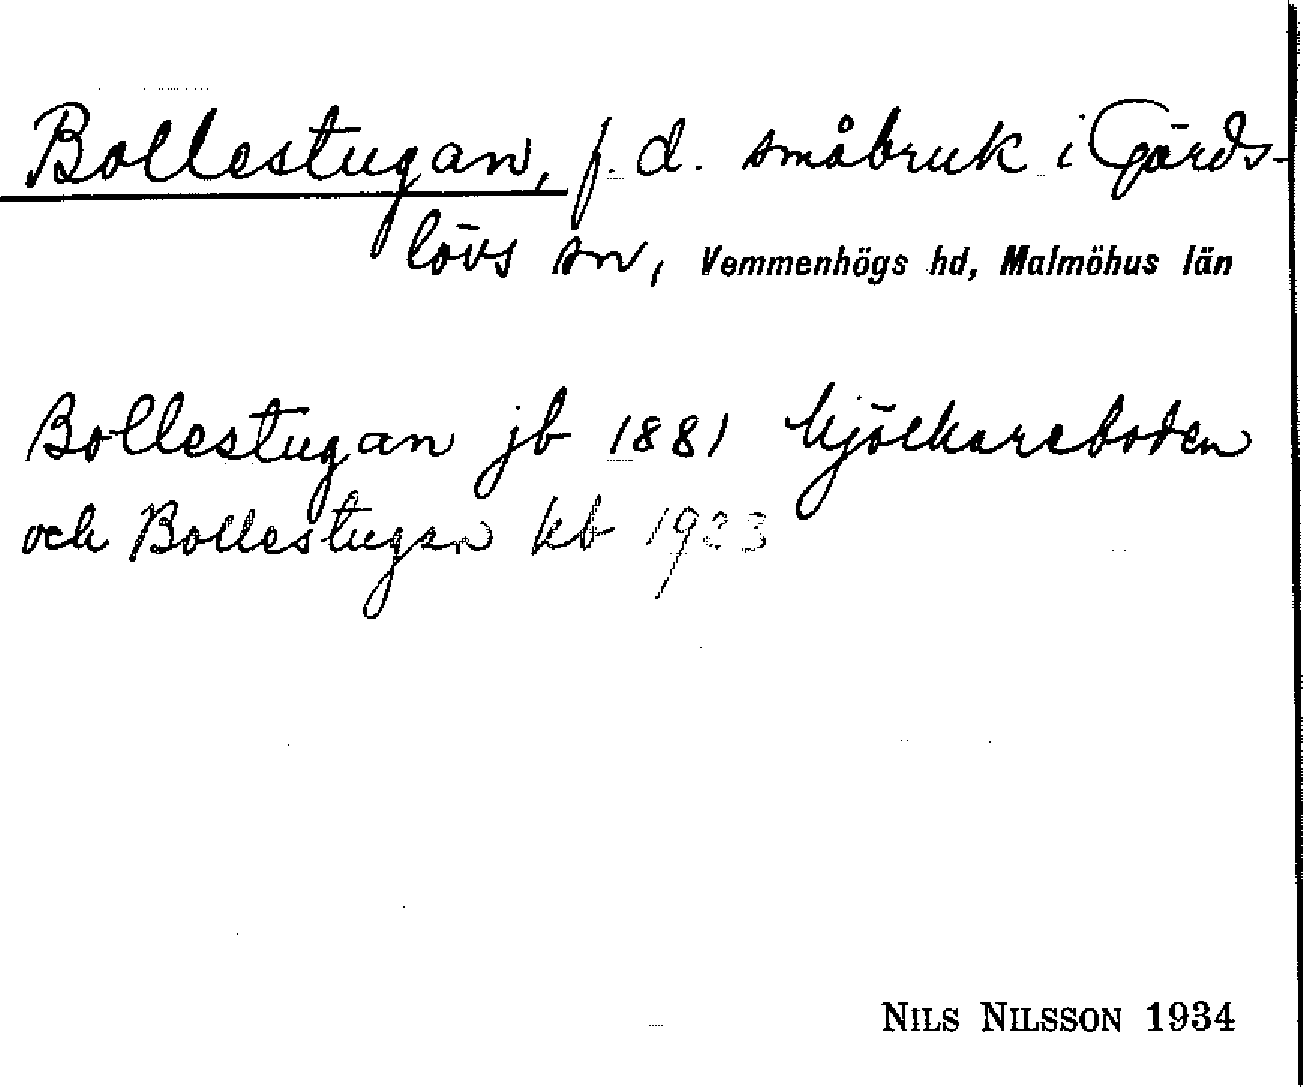 Bollestugan, f. d. småbruk i Gärds-
lövs sn, Vemmenhögs hd, Malmöhus län
Bollestugan jb 1881 Mjölkareboden
och Bollestugan kb 1923
NILS NILSSON 1934